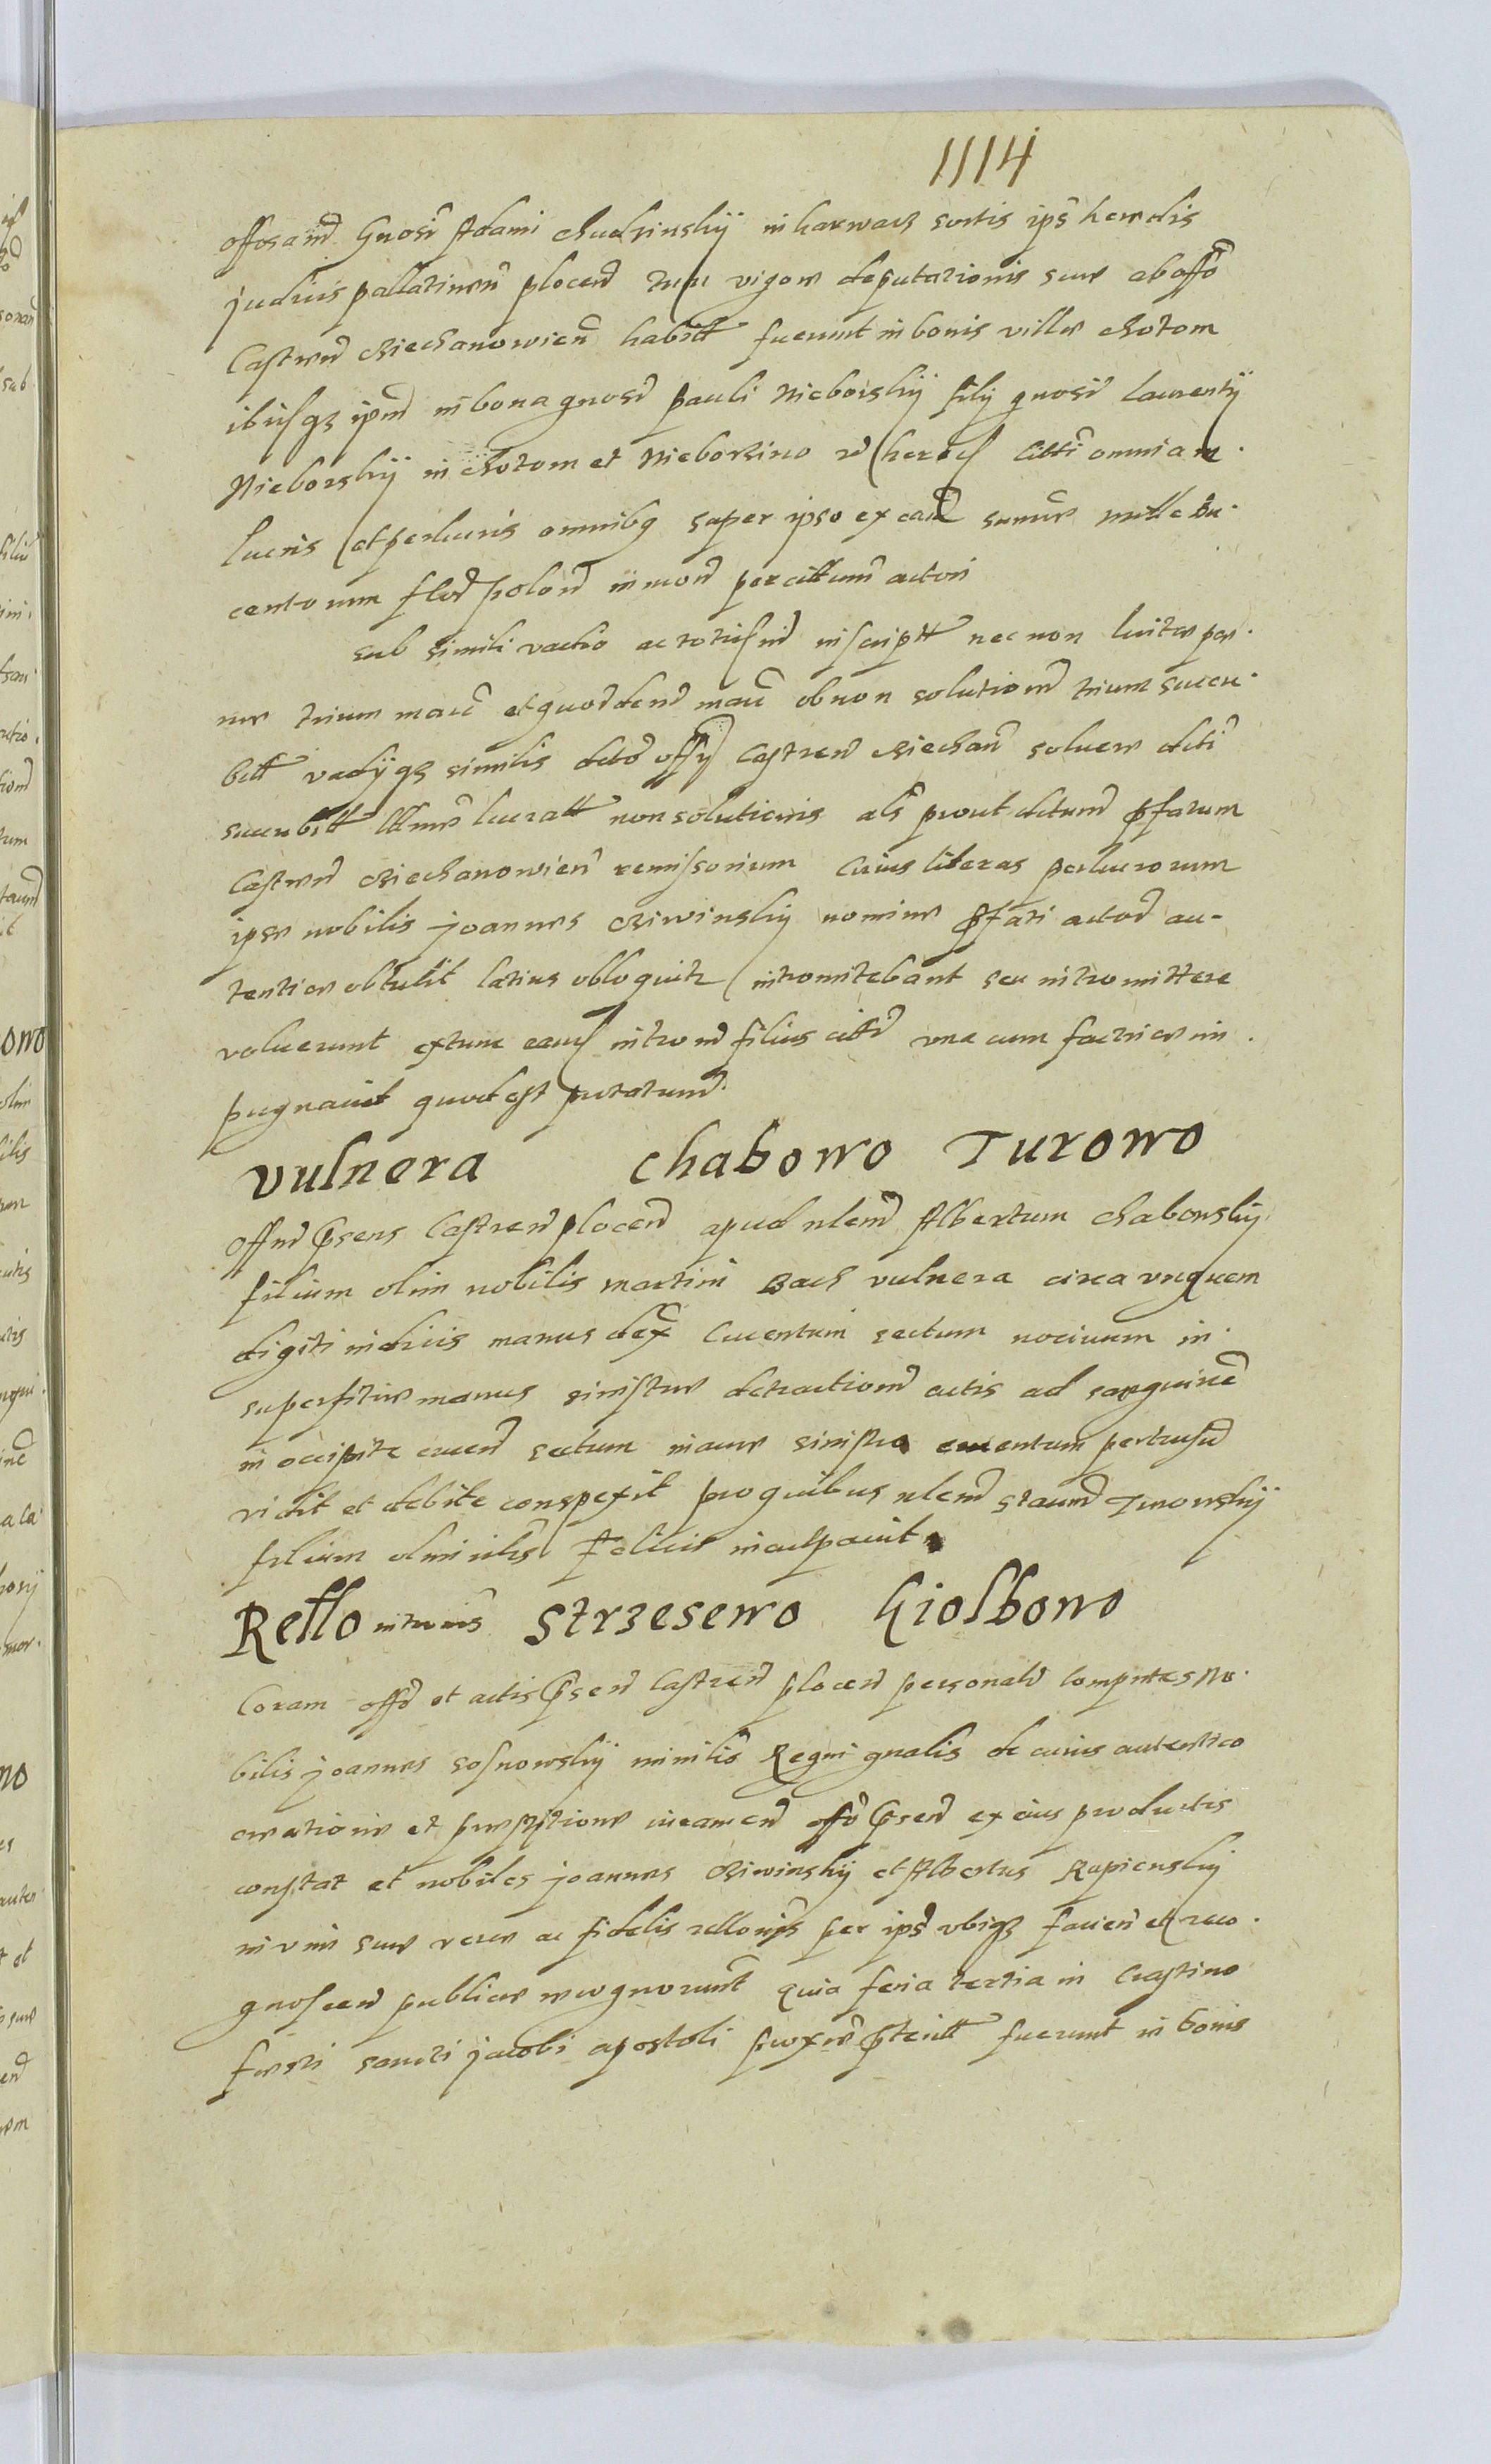 1114
offosamd Gnosi Adami Chudzinskÿ in karwacz sortis ips heredis
judicis pallatinen plocen tum vigore deputationis sue ab offo
Castren Ciechanowien habitt fuerunt in bonis ville Chotom
ibusqz ipm in bona gnosi pauli Nieborskÿ filÿ gnosi laurentÿ
Nieborskÿ in Chotom et Nieborzino hered citti omnia
lucris et perlucris omnibq super ipso ex eade summe mille du
centorum flor polon in mon per cittum actori
sub simili vadio ac totiusm inscriptt nec non luite pe
ne trium marc et quotdend marc ob non solutiond trium succu
bitt vadÿqz similis dicto offÿ Castren Ciechan soluere dicti
succubitt lucratt non solutionis als prout dictumd pfatum
Castren Ciechanowien remissorium Cuius literas perlucrorum
ipse nobilis joannes Ciwinskÿ nomine pfati actor au-
tentice obtulit latius obloquitr intromitebant seu intromittere
voluerunt extunc eand introm filius citti vna cum factrice im
pugnauit quod est putatum
vulnera Chabowo Turowo
Offm psens Castren plocen apud nlem Albertum Chabowskÿ
filium olim nobilis martini Bach vulnera circa vnguem
digiti indicis manus dex Cruentum sectum nociuum in
superfitie manus sinistre detractiond cutis ad sanguine
in occipite cruend sectum in aure sinistra cruentum pertusu
vidit et debite conspexit pro quibus nlem staund Turowskÿ
filium olim nlis Felicis inculpauit
Rello intrnis Strzesewo Giolbowo
Coram offo et actis psen Castren plocen personalr comprntes No
bilis joannes sosnowskÿ minilis Regni gnalis de cuius autentico
creationis et prestitione iuramen offo psen ex eius productis
constat et nobiles joannes Ciwinskÿ et Albertus Rapienskÿ
in vim sue vere ac fidelis rellonis per ips vbiqz facien et reco
gnoscen publice recognorunt quia feria tertia in Crastino
festi sancti jacobi apostoli proxime pteritt fuerunt in bonis